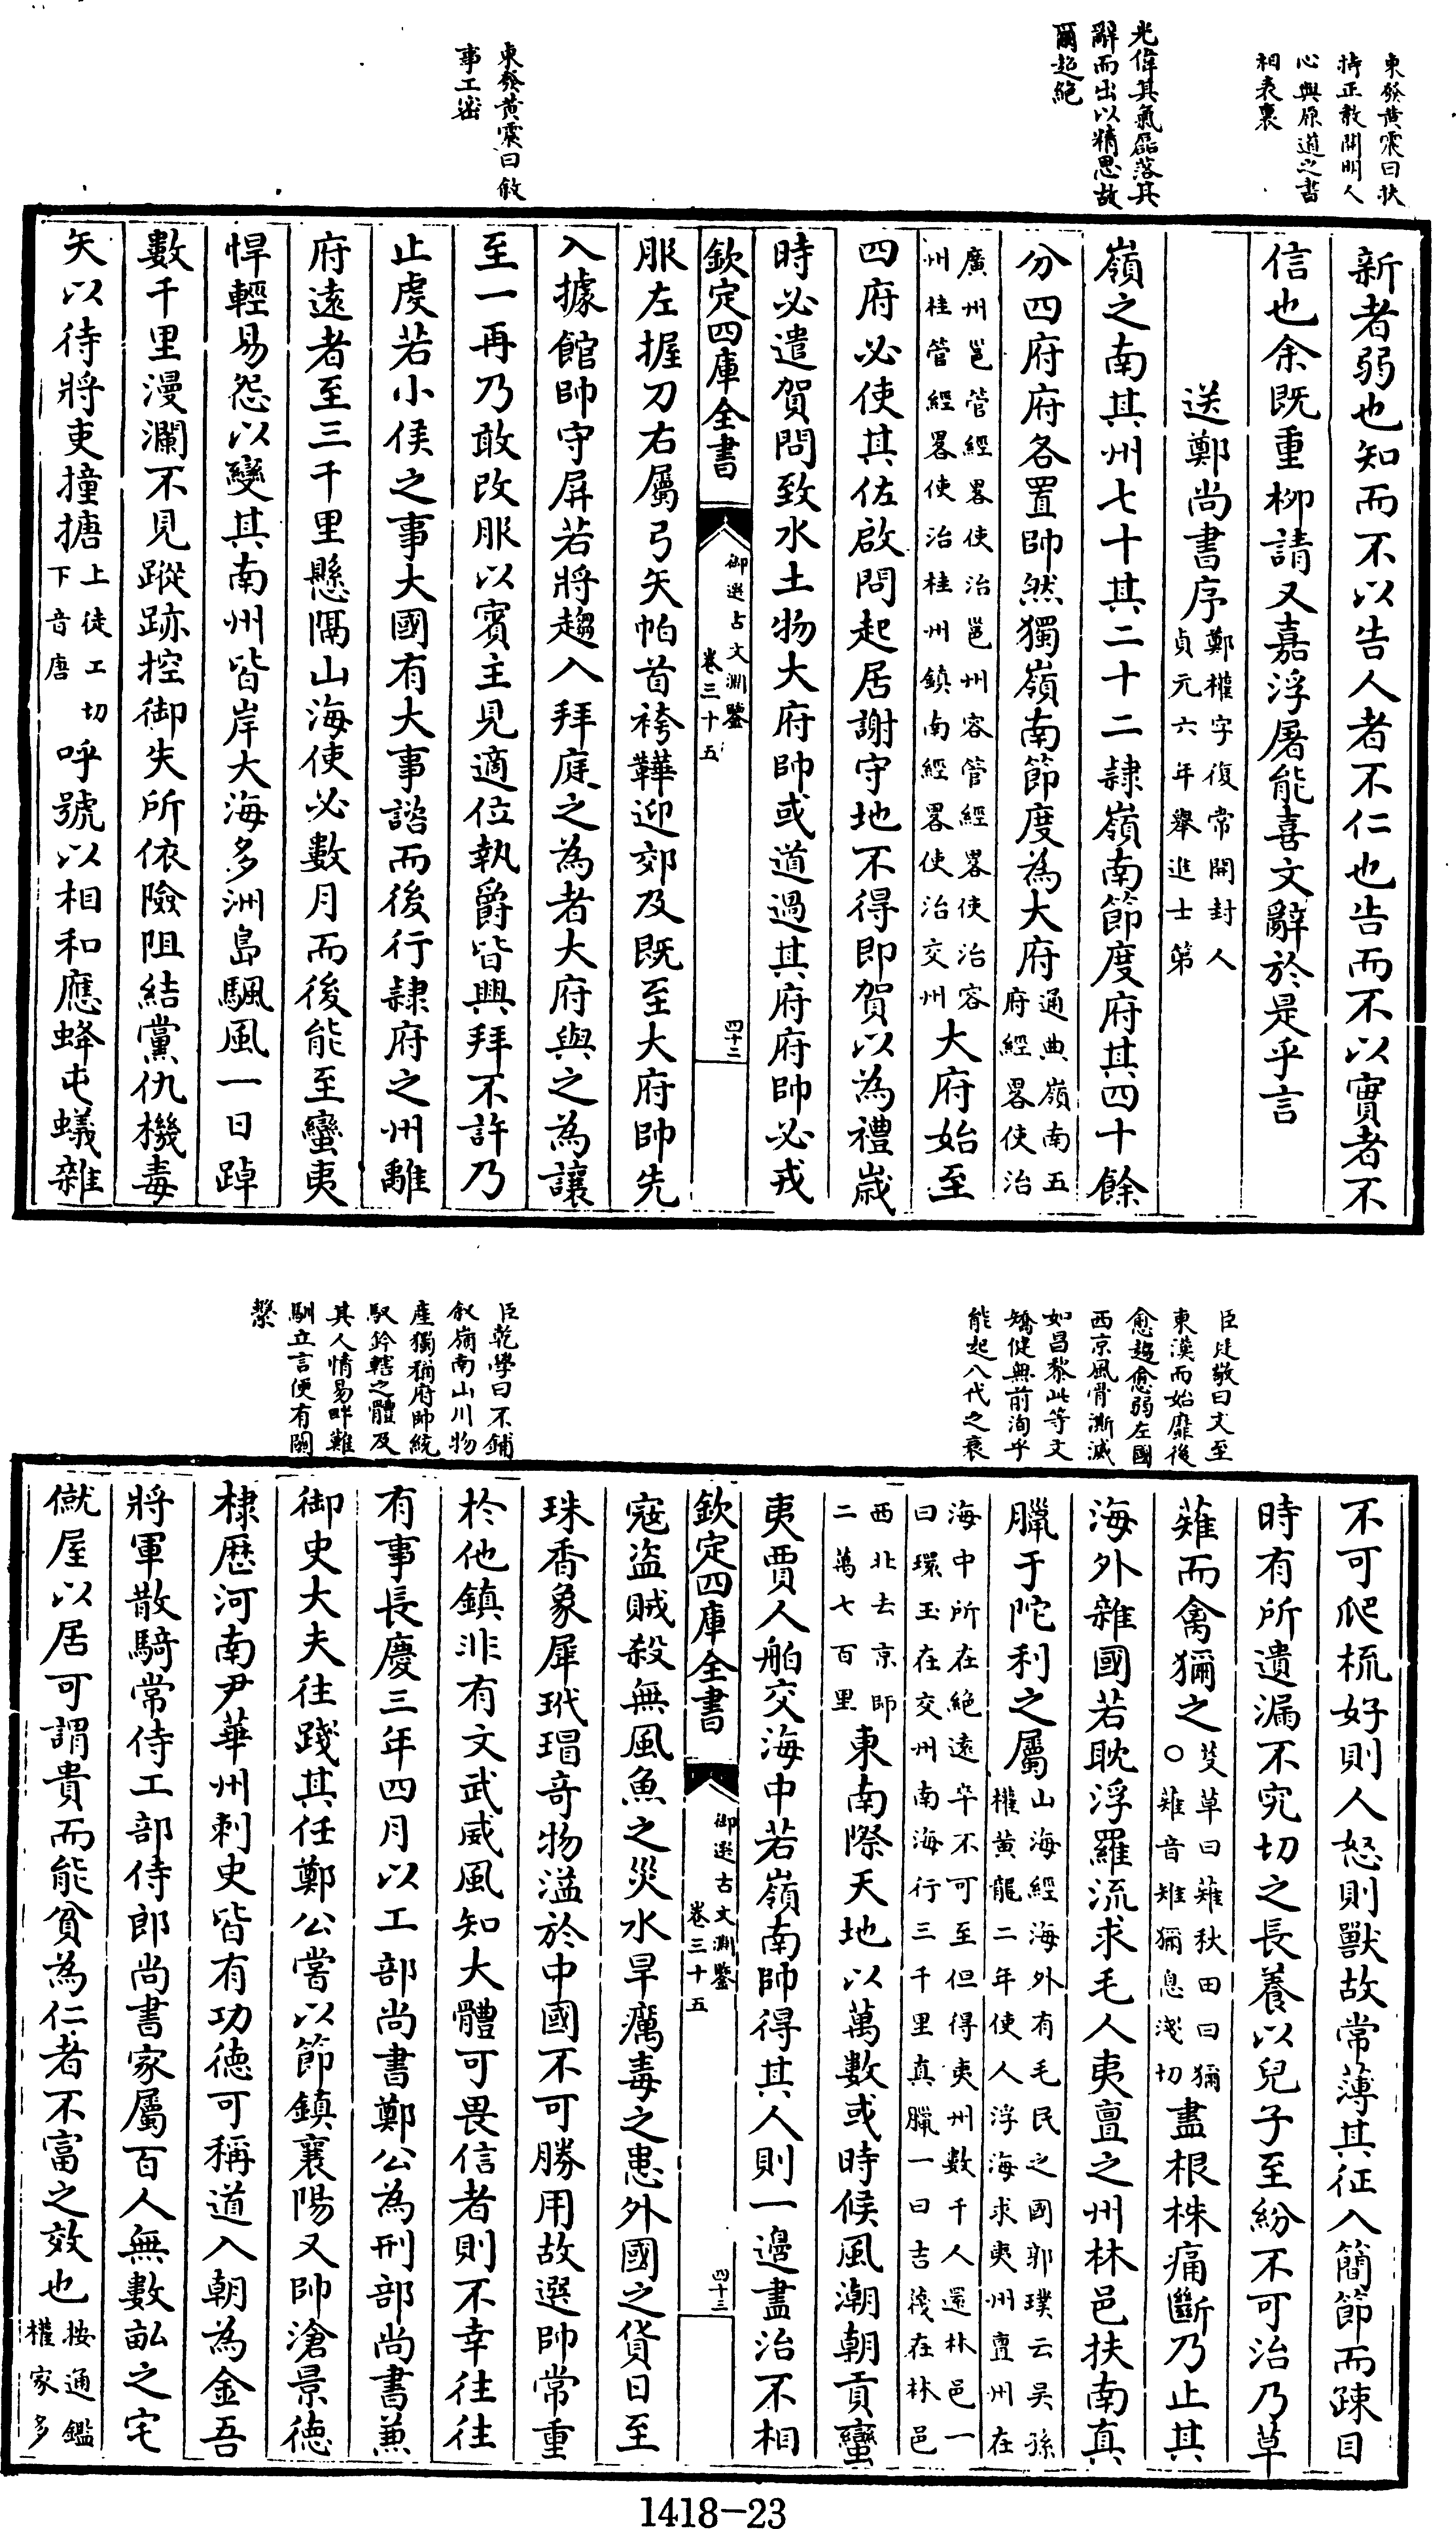 東發黃震曰扶
持正教開明人
心與原道之書
相表裏
光偉其氣磊落其
辭而出以精思故
爾超絶
東發黃震曰敘
事工密
新者弱也知而不以告人者不仁也告而不以實者不
信也余既重柳請又嘉浮屠能喜文辭於是乎言
送鄭尚書序鄭權字復常開封人
貞元六年舉進士第
嶺之南其州七十其二十二隷嶺南節度府其四十餘
分四府府各置帥然獨嶺南節度為大府通典嶺南五
府經畧使治
廣州邕管經畧使治邕州容管經畧使治容
州桂管經畧使治桂州鎮南經畧使治交州大府始至
四府必使其佐啟問起居謝守地不得即賀以為禮嵗
時必遣賀問致水土物大府帥或道過其府府帥必戎
欽定四庫全書
御選古文淵鑒
卷三十五
四十二
服左握刀右屬弓矢帕首袴鞾迎郊及既至大府帥先
入據館帥守屏若將趨入拜庭之為者大府與之為讓
至一再乃敢改服以賓主見適位執爵皆興拜不許乃
止虔若小侯之事大國有大事諮而後行隷府之州離
府遠者至三千里懸隔山海使必數月而後能至蠻夷
悍輕易怨以變其南州皆岸大海多洲島颿風一日踔
數千里漫瀾不見蹤跡控御失所依險阻結黨仇機毒
矢以待將吏撞搪上徒工切
下音唐呼號以相和應蜂屯蟻雜
臣廷敬曰文至
東漢而始靡後
愈趨愈弱左國
西京風骨澌滅
如昌黎此等文
矯健無前洵乎
能起八代之衰
臣乾學曰不鋪
敘嶺南山川物
產獨稱府帥統
馭鈐轄之體及
其人情易畔難
馴立言便有關
繫
不可爬梳好則人怒則獸故常薄其征入簡節而疎目
時有所遺漏不究切之長養以兒子至紛不可治乃草
薙而禽獮之芟草曰薙秋田曰獮
○薙音雉獮息淺切盡根株痛斷乃止其
海外雜國若耽浮羅流求毛人夷亶之州林邑扶南真
臘于陀利之屬山海經海外有毛民之國郭璞云吳孫
權黃龍二年使人浮海求夷州亶州在
海中所在絶遠卒不可至但得夷州數千人還林邑一
曰環玉在交州南海行三千里真臘一曰吉篾在林邑
西北去京師
二萬七百里東南際天地以萬數或時候風潮朝貢蠻
夷賈人舶交海中若嶺南帥得其人則一邊盡治不相
欽定四庫全書
御選古文淵鑒
卷三十五
四十三
寇盜賊殺無風魚之災水旱癘毒之患外國之貨日至
珠香象犀玳瑁奇物溢於中國不可勝用故選帥常重
於他鎮非有文武威風知大體可畏信者則不幸往往
有事長慶三年四月以工部尚書鄭公為刑部尚書兼
御史大夫往踐其任鄭公嘗以節鎮襄陽又帥滄景徳
棣歴河南尹華州刺史皆有功徳可稱道入朝為金吾
將軍散騎常侍工部侍郎尚書家屬百人無數畝之宅
僦屋以居可謂貴而能貧為仁者不富之效也按通鑑
權家多
1418-23